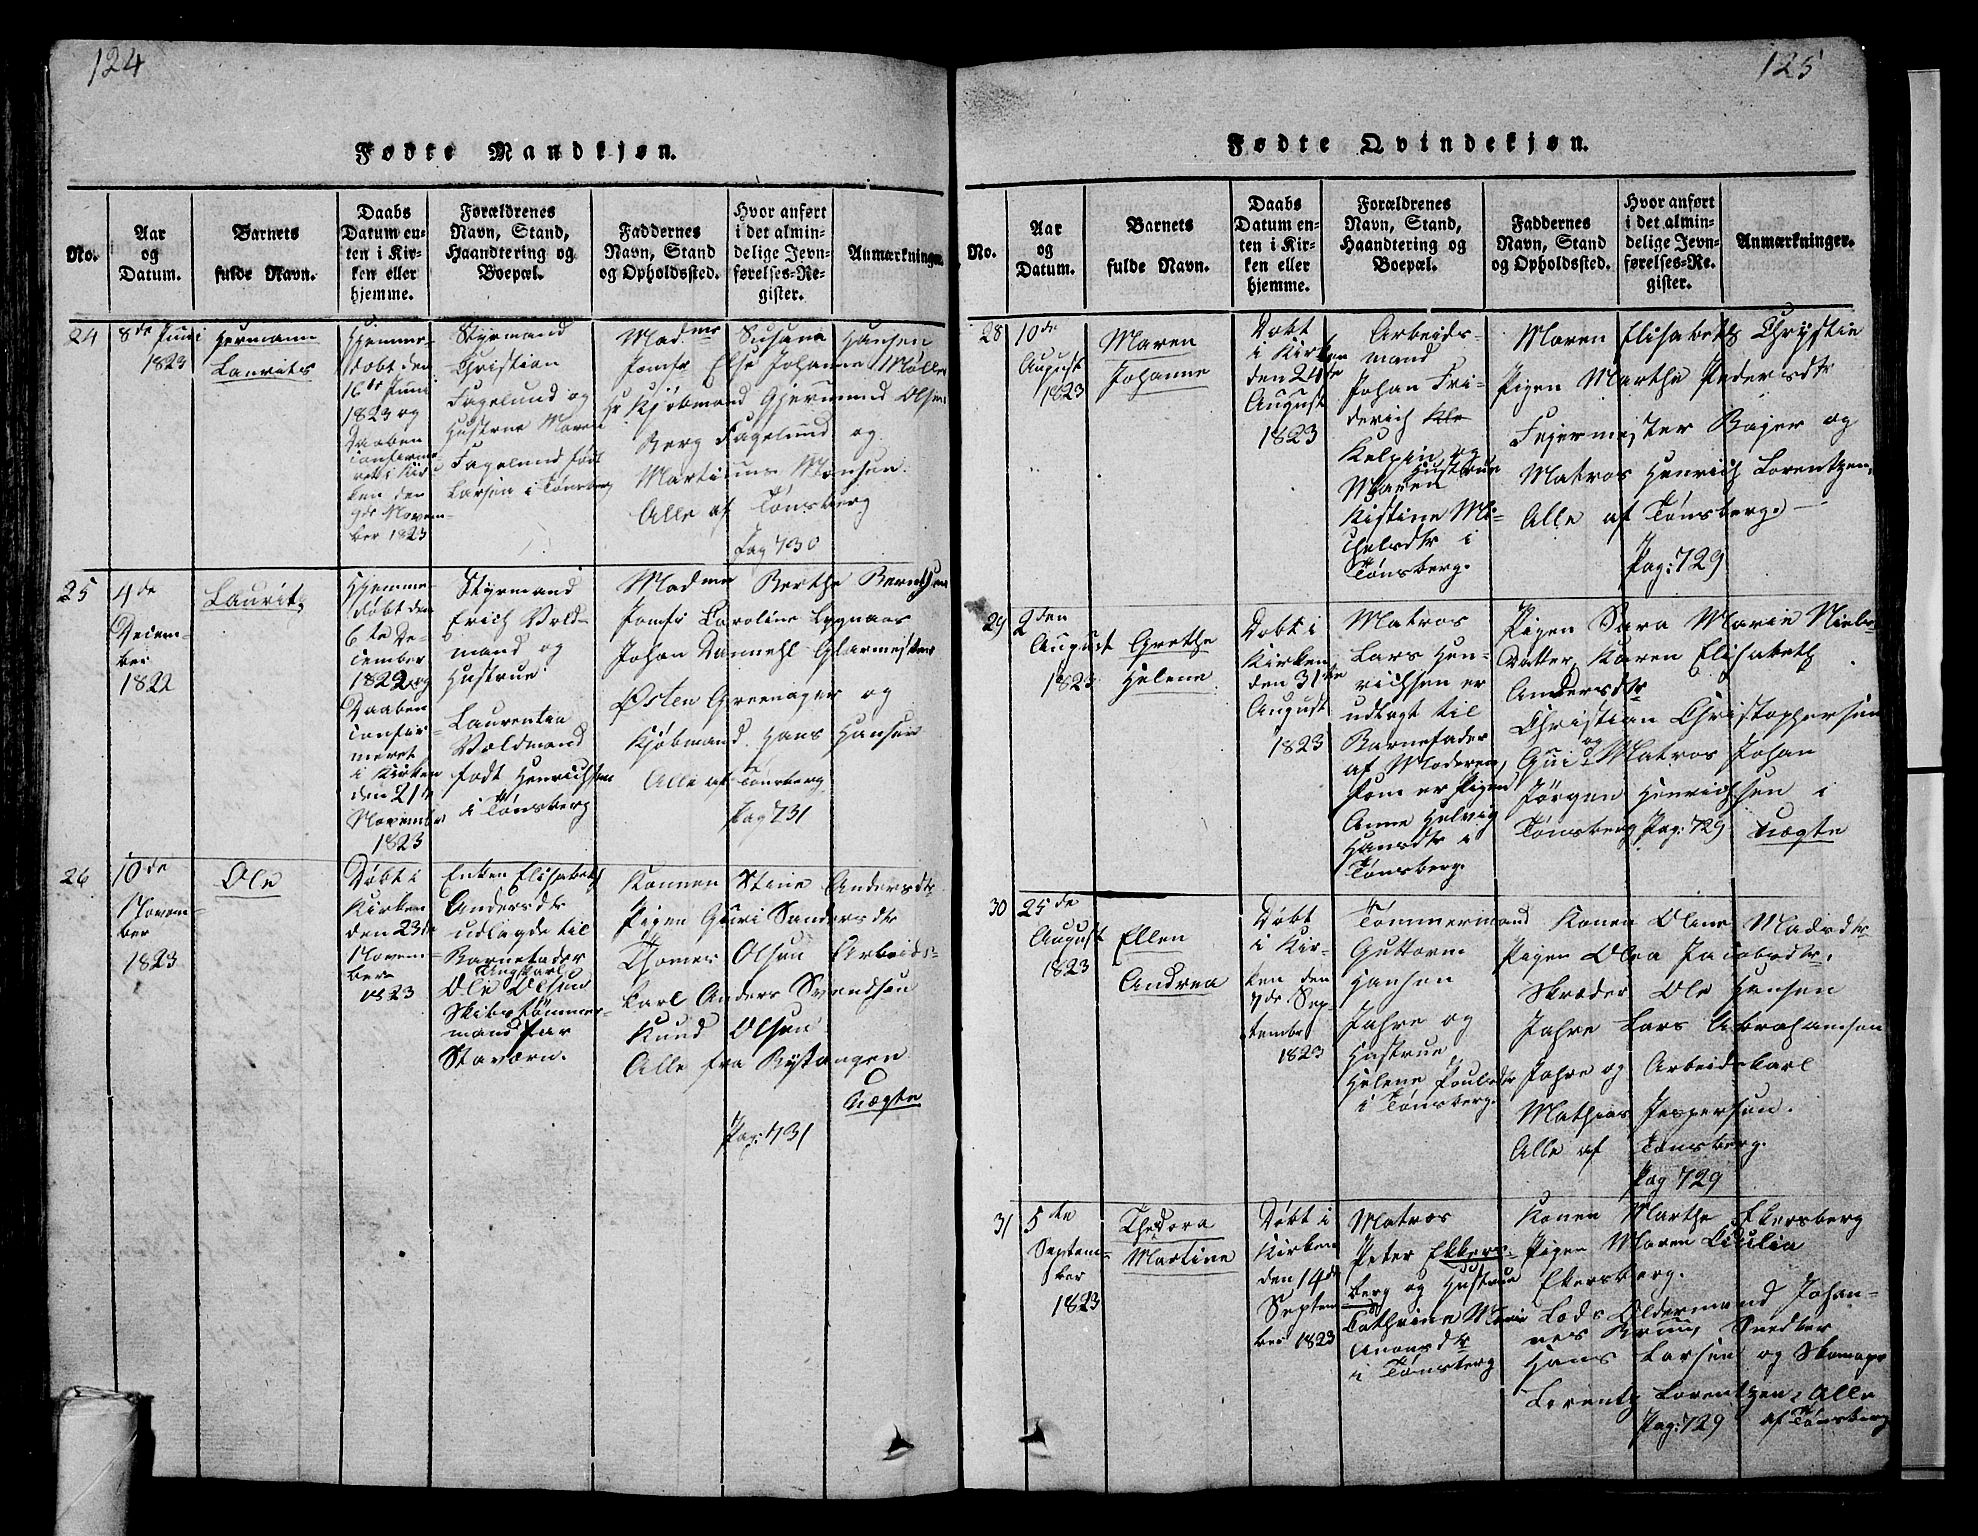 124
Fødte Mandkjøn.
No.
Aar
og
Datum.
Barnets
fulde Navn.
Daabs
Datum en-
ten i Kir-
ken eller
hjemme.
Forældrenes
Navn, Stand,
Haandtering og
Boepæl.
Faddernes
Navn, Stand
og Opholdssted.
Hvor anført
i det almin-
delige Jevn-
førelses-Re-
gister.
Anmærkninger.
24
8de Juni
1823
Hermann
Laurits
Hjemme-
døbt den
16de Juni
1823 og
Daaben
confirme
ret i Kir-
ken den
9de Novem-
ber 1823
Styrmand
Christian
Fagelund og
Hustrue Maren
Fagelund født
Larsen i Tønsberg
Madme Susana Hansen
Jomfr Else Johanne Møller
Hr Kjøbmand Gjermund Olsen
Berg Fagelund og
Martinus Monsen.
Alle af Tønsberg
Pag 730
25
4de
Decem-
ber
1822
Lauritz
Hjemme-
døbt den
6te De-
cember
1822 og
Daaben
confir-
meret
i Kirken
den 21de
November
1823
Styrmand
Erich Vold-
mand og
Hustrue
Laurentia
Voldmand
født Henrichsen
i Tønsberg
Madme Berthe Berntsen
Jomfr Caroline Lygnaas
Johan Dannehl Glarmester
Østen Greenager og
Kjøbmand Hans Hansen
Alle af Tønsberg
Pag 731
26
10de
Novem-
ber
1823
Ole
Døbt i
Kirken
den 23de
Novem-
ber
1823
Enken Elisabeth
Andersdtr
udlagde til
Barnefader
Ungkarl
Ole Olsen
Skibstømmer-
mand fra
Staværn.
Konnen Stine Andersdtr
Pigen Guri Sandersdtr
Thomes Olsen Arbeids-
karl Anders Svendsen
Knud Olsen
Alle fra Rystangen
Uægte
Pag: 731
125
Fødte Qvindekjøn.
No.
Aar
og
Datum.
Barnets
fulde Navn.
Daabs
Datum en-
ten i Kir-
ken eller
hjemme.
Forældrenes
Navn, Stand,
Haandtering og
Boepæl.
Faddernes
Navn, Stand
og Opholdssted.
Hvor anført
i det almin-
delige Jevn-
førelses-Re-
gister.
Anmærkninger.
28
10de
August
1823
Maren
Johanne
Døbt
i Kirken
den 24de
August
1823
Arbeids-
mand
Johan Fri-
derich Kle
Kelpin og
Hustrue
Maren
Kistine Mi-
chelsdtr i
Tønsberg.
Maren Elisabeth Chrystie
Pigen Marthe Pedersdtr
Fejermester Bojer og
Matros Henrich Lorentzen,
Alle af Tønsberg.
Pag: 729
29
2den
August
1823
Grethe
Helene
Døbt i
Kirken
den 31te
August
1823
Matros
Lars Hen-
richsen er
udlagt til
Barnefader
af Moderen,
som er Pigen
Anne Helvig
Hansdtr i
Tønsberg.
Pigen Sara Marie Niels-
Datter, Karen Elisabeth
Andersdtr
Christian Christophersen
og Matros Johan
Jørgen Henrichsen i
Tønsberg Pag: 729 Uægte
30
25de
August
1823
Ellen
Andrea
Døbt
i Kir-
ken den
7de Sep-
tember
1823
Tømmermand
Guttorm
Hansen
Jahre og
Hustrue
Helene Poulsdtr
i Tønsberg.
Konen Oline Madsdtr
Pigen Olea Jacobsdtr,
Skræder Ole Hensen
Jahre Lars Abrahamsen
Jahre og Arbeidskarl
Mathias Jespersen.
Alle af Tønsberg.
Pag 729
31
5te
Septem-
ber
1823
Thedora
Martine
Døbt i
Kirken
den 14de
Septem
ber 1823
Matros
Peter Ekkers-
berg og Hustrue
Cathrine Marie
Anonsdtr
i Tønsberg
Konen Marthe Ekersberg
Pigen Maren Cicilia
Ekersberg.
Lods Oldermand Johan-
nes Bruun, Snedker
Hans Larsen og Skomager
Lorentz Lorentzen, Alle
Pag: 729 af Tønsberg